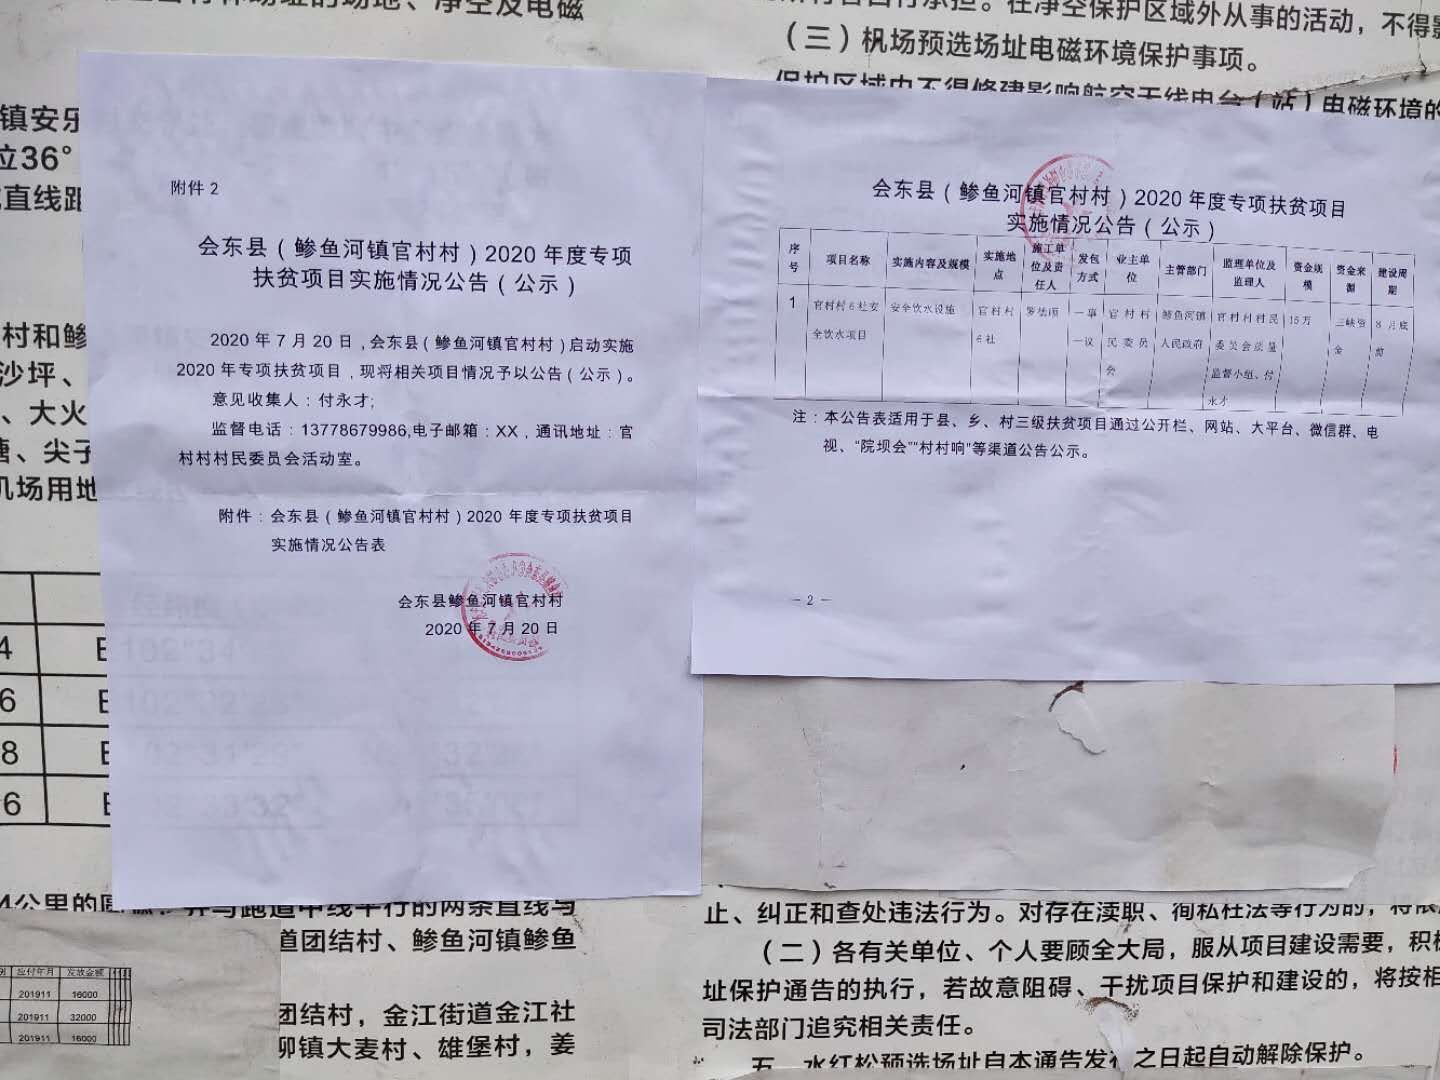 附件 2
会东县（鲹鱼河镇官村村）2020 年度专项
扶贫项目实施情况公告（公示）
2020 年 7 月 20 日，会东县（鲹鱼河镇官村村）启动实施
2020 年专项扶贫项目，现将相关项目情况予以公告（公示）。
意见收集人：付永才;
监督电话：13778679986,电子邮箱：XX，通讯地址：官
村村村民委员会活动室。
附件：会东县（鲹鱼河镇官村村）2020 年度专项扶贫项目
实施情况公告表
会东县鲹鱼河镇官村村
2020 年 7 月 20 日
会东县（鲹鱼河镇官村村）2020 年度专项扶贫项目
实施情况公告（公示）
序号 项目名称 实施内容及规模 实施地点 施工单位及责任人 发包方式 业主单位 主管部门 监理单位及监理人 资金规模 资金来源 建设周期
1 官村村6社安全饮水项目 安全饮水设施 官村村6社 一事一议 官村村民委员会 鲹鱼河镇人民政府 官村村村民委员会质量监督小组、付永才 15万 三峡资金 8月底前
注：本公告表适用于县、乡、村三级扶贫项目通过公开栏、网站、大平台、微信群、电
视、“院坝会”“村村响”等渠道公告公示。
— 2 —
场址的场地、净空及电磁
在净空保护区域外从事的活动，不得
（三）机场预选场址电磁环境保护事项。
保护区域内不得修建影响航空无线电台（站）电磁环境的
镇安乐
位36°
直线距
村和鲹
沙坪、
、大火
塘、尖子
机场用地
4
6
8
6
4公里的
并与跑道中线平行的两条直线与
道团结村、鲹鱼河镇鲹鱼
团结村，金江街道金江社
柳镇大麦村、雄堡村，姜
应付年月 发放金额
201911 16000
201911 32000
201911 16000
止、纠正和查处违法行为。对存在渎职、徇私枉法等行为的，将依
（二）各有关单位、个人要顾全大局，服从项目建设需要，积极
址保护通告的执行，若故意阻碍、干扰项目保护和建设的，将按相
司法部门追究相关责任。
五、水红松预选场址自本通告发布之日起自动解除保护。